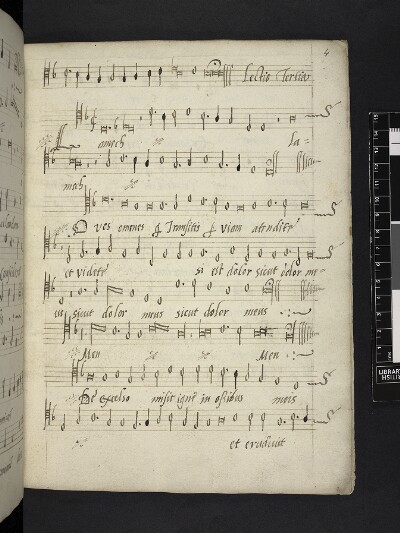 4
Lectio Tertia
Lamech La=
meh
O vos omnes q Transitis p viam atendite
et videte si est dolor sicut dolor me
us sicut dolor meus sicut dolor meus
Men Men
De excelso misit igne in ossibus meis
et erudiuit
LIBRARY
BRITISH